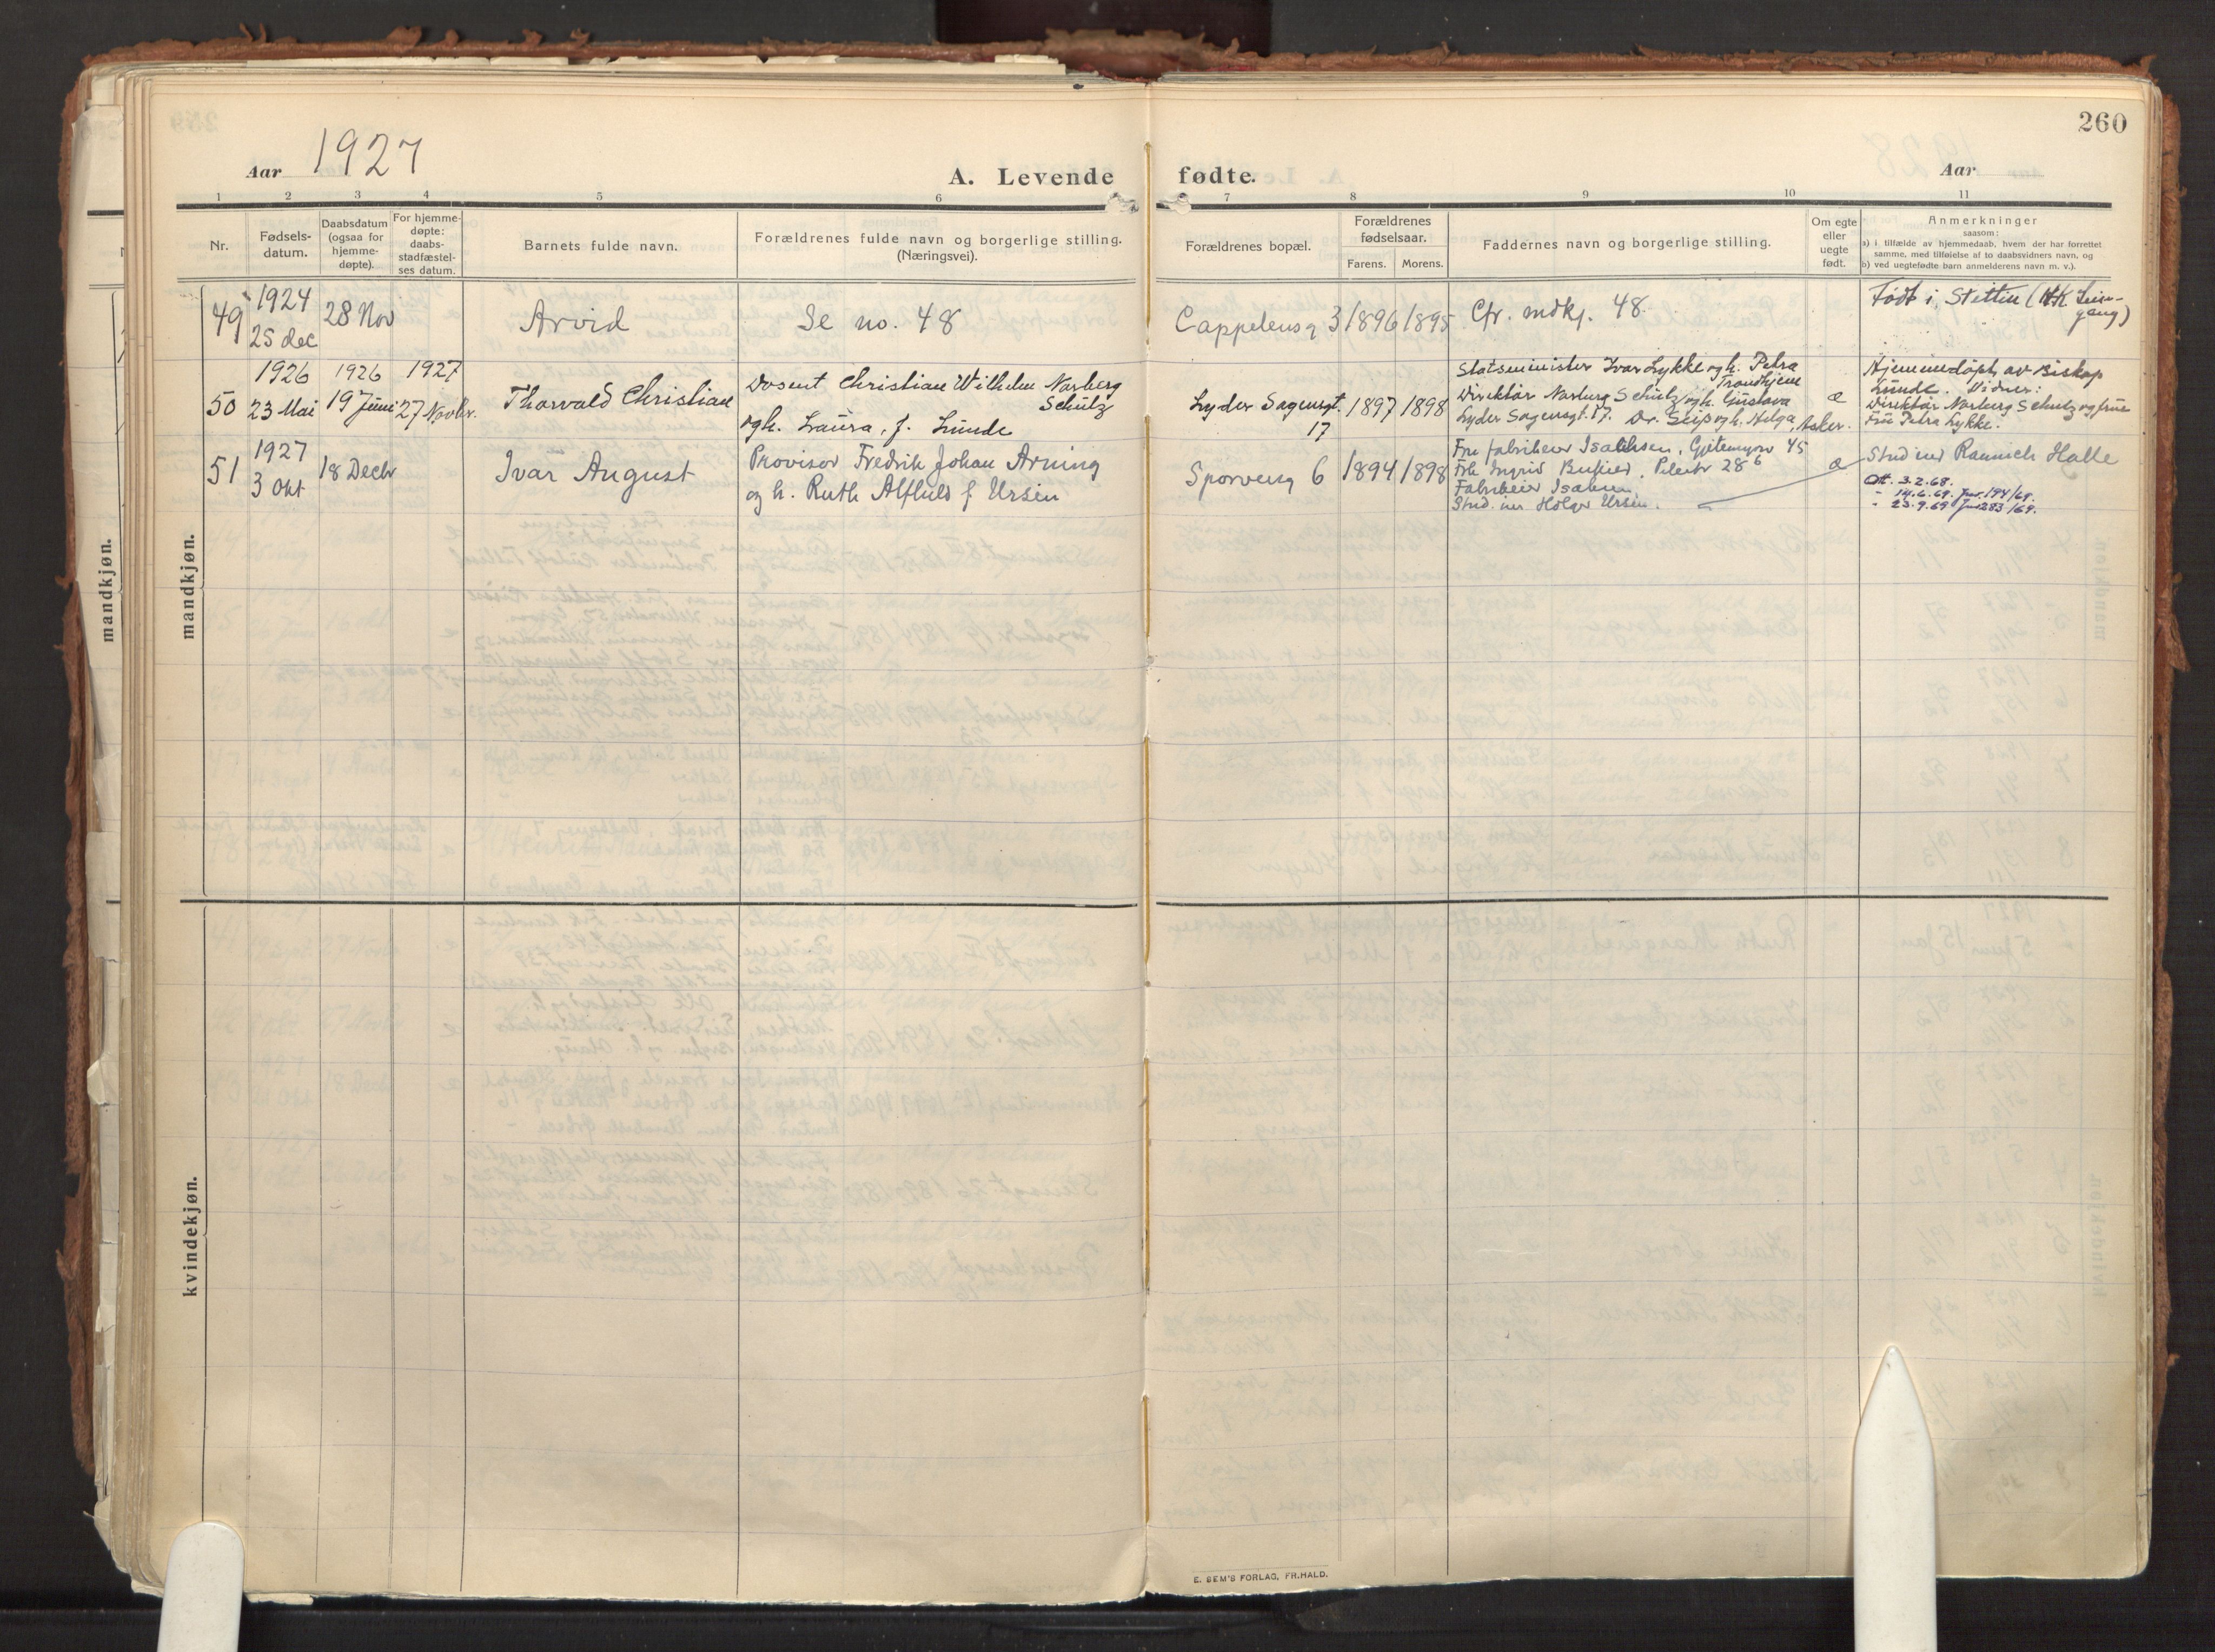 260
Aar 1927
A. Levende fødte.
Aar
1 2 3 4 5 6 7 8 9 10 11
Nr.
Fødsels-
datum.
Daabsdatum
(ogsaa for
hjemme-
døpte).
For hjemme-
døpte:
daabs-
stadfæstel-
ses datum.
Barnets fulde navn.
Forældrenes fulde navn og borgerlige stilling.
(Næringsvei).
Forældrenes bopæl.
Forældrenes
fødselsaar.
Farens. Morens.
Faddernes navn og borgerlige stilling.
Om egte
eller
uegte
født.
Anmerkninger
saasom:
a) i tilfælde av hjemmedaab, hvem der har forrettet
samme, med tilføielse af to daabsvidners navn, og
b) ved uegtefødte barn anmelderens navn m. v.).
mandkjøn.
mandkjøn.
49
1924
25 dec
28 Nov
Arvid
Se no. 48
Cappelensg 3
1896 1895
Cfr. mdkj. 48.
Født i Stettin
50
1926
23 Mai
1926
19 Juni
1927
27 Novbr.
Thorvald Christian
Dosent Christian Wilhelm Narberg
Schulz
og h. Laura, f. Lunde
Lyder Sagensgt.
17
1897 1898
Statsminister Ivar Lykke og h. Petra
Trondhjem
Direktør Narberg Schulz og h. Gustava
Lyder Sagensgt. 17. Dr. Seip og h. Helga, Asker.
æ
Hjemmedøpt av Biskop
Lunde. Vidner:
Direktør Narberg Schulz og frue
Fru Petra Lykke.
51
1927
3 Okt
18 Decbr
Ivar August
Provisor Fredrik Johan Arning
og h. Ruth Alfhild f Ursin
Sporveisg 6
1894 1898
Fru fabrikeier Isachsen, Gjetemyrv 45
Frk Ingrid
Fabrikeier Isachsen
Stud. Holger Ursin.
æ
Stud med Halle
Att. 3.2.68.
- 14.6.69. Jnr. 194/69.
- 23.9.69 Jnr 283/69.
kvindekjøn.
E. SEM'S FORLAG, FR.HALD.